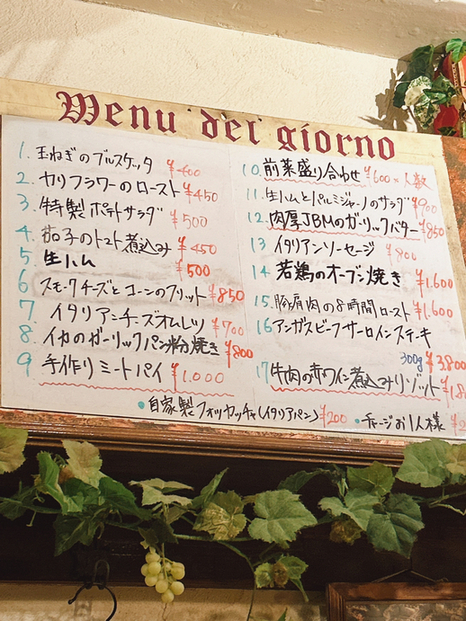 Menu del giorno
1. 玉ねぎのブルスケッタ ¥400
2. カリフラワーのロースト ¥450
3. 特製ポテトサラダ ¥500
4. 茄子のトマト煮込み ¥450
5 生ハム ¥500
6 スモークチーズとコーンのフリット ¥850
7 イタリアンチーズオムレツ ¥700
8 イカのガーリックパン粉焼き ¥800
9 手作りミートパイ ¥1.000
10. 前菜盛り合わせ ¥600×人数
11. 生ハムとパルミジャーノのサラダ ¥900
12. 肉厚JBMのガーリックバター ¥850
13 イタリアンソーセージ ¥800
14 若鶏のオーブン焼き ¥1.600
15. 豚肩肉の8時間ロースト ¥1.600
16 アンガスビーフサーロインステーキ
300g ¥3.800
17 牛肉の赤ワイン煮込みリゾット
•自家製フォカッチャ(イタリアパン) ¥200 •チャージお1人様